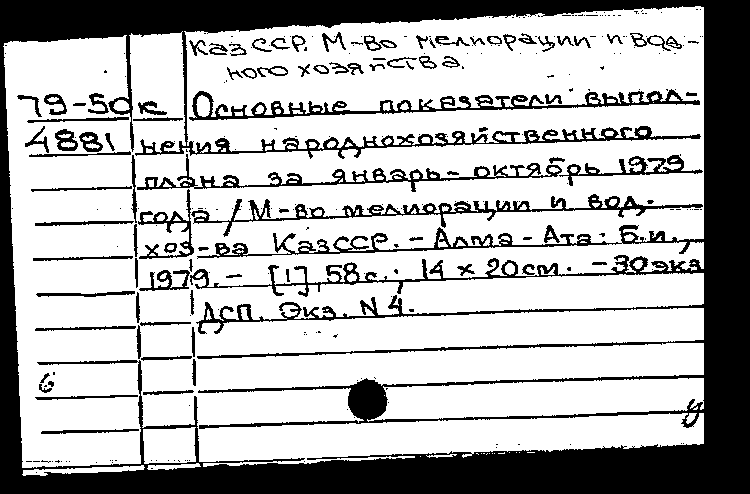 КазССР. М-во мелиорации и вод-
ного хозяйства.
79-50к Основные показатели выпол-
4881 нения народнохозяйственного
плана за январь-октябрь 1979
года / М-во мелиорации и вод.
хоз-ва КазССР. - Алма-Ата: Б.и.,
1979. - [1], 58 с.; 14 х 20 см. - 30 экз
Дсп. Экз. N 4.
6
у